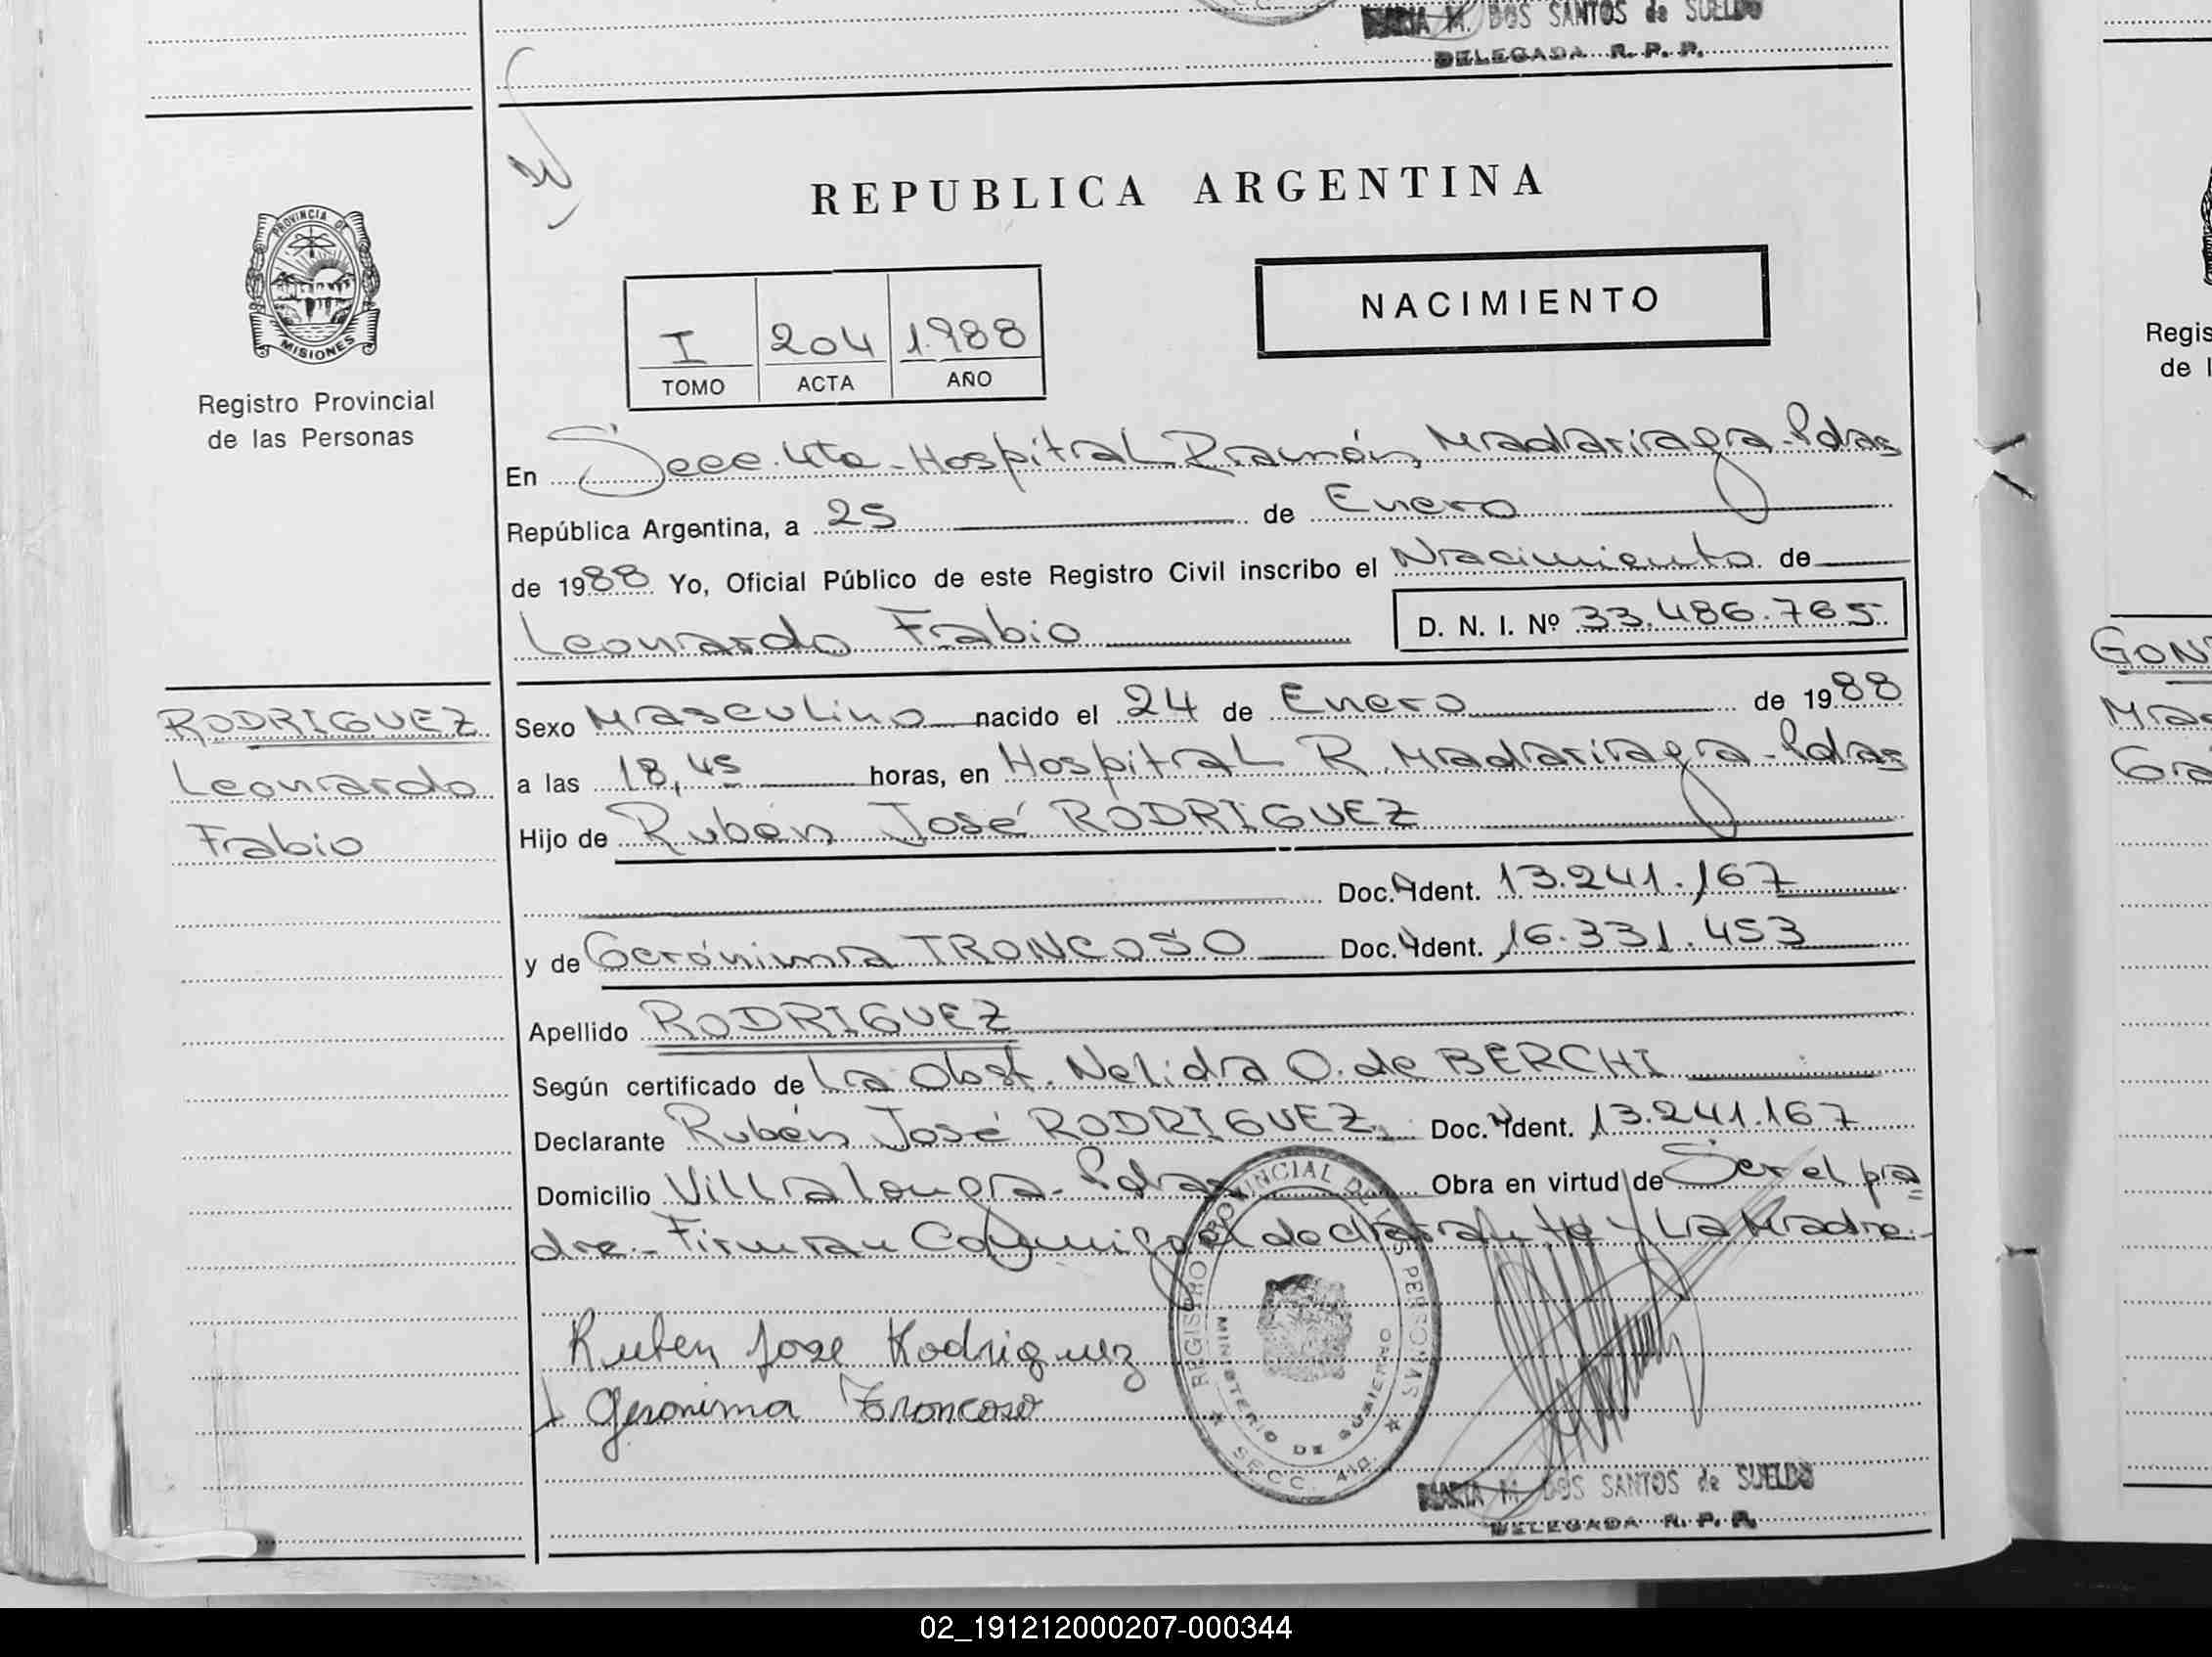 MARIA M. DOS SANTOS de SUELDO
DELEGADA R. P. P.
PROVINCIA DE
MISIONES
Registro Provincial
de las Personas
REPUBLICA ARGENTINA
NACIMIENTO
I 204 1.988
TOMO ACTA AÑO
En Secc. 4ta - Hospital Ramón Madariaga - Pdas
República Argentina, a 25 de Enero
de 1988 Yo, Oficial Público de este Registro Civil inscribo el Nacimiento de
Leonardo Fabio D. N. I. Nº 33.486.765
RODRIGUEZ
Leonardo
Fabio
Sexo Masculino nacido el 24 de Enero de 1988
a las 18,45 horas, en Hospital R. Madariaga - Pdas
Hijo de Rubén José RODRIGUEZ
Doc. Ident. 13.241.167
y de Gerónima TRONCOSO Doc. Ident. 16.331.453
Apellido RODRIGUEZ
Según certificado de La Obst. Nelida O. de BERCHI
Declarante Rubén José RODRIGUEZ Doc. Ident. 13.241.167
Domicilio Villalonga - Pdas Obra en virtud de Ser el pa=
dre.- Firman Conmigo el declarante y La Madre.-
Ruben Jose Rodriguez
Geronima Troncoso
REGISTRO PROVINCIAL DE LAS PERSONAS
MINISTERIO DE GOBIERNO
SECC. 4ta.
MARIA M. DOS SANTOS de SUELDO
DELEGADA R. P. P.
Regis
de l
GON
Ma
Gra
02_191212000207-000344